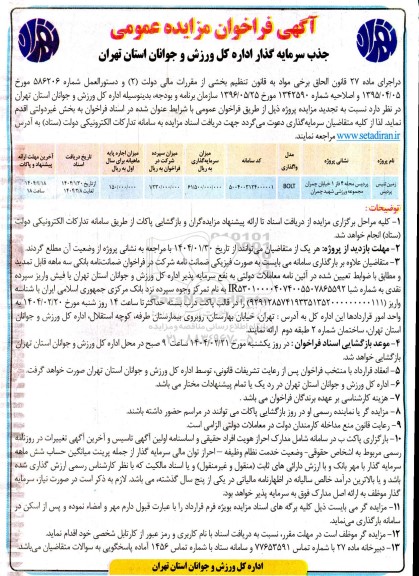 آگهی فراخوان مزایده عمومی
جذب سرمایه گذار اداره کل ورزش و جوانان استان تهران
دراجرای ماده ۲۷ قانون الحاق برخی مواد به قانون تنظیم بخشی از مقررات مالی دولت (۲) و دستورالعمل شماره ۵۸۶۲۰۶ مورخ
۱۳۹۵/۰۴/۰۵ و اصلاحیه شماره ۱۳۴۳۵۹۰ مورخ ۱۳۹۶/۰۵/۲۵ سازمان برنامه و بودجه، بدینوسیله اداره کل ورزش و جوانان استان تهران
در نظر دارد نسبت به تجدید مزایده پروژه ذیل از طریق فراخوان عمومی با شرایط عنوان شده در اسناد فراخوان به بخش غیردولتی اقدم
نماید. لذا از کلیه متقاضیان سرمایه‌گذاری دعوت می‌گردد جهت دریافت اسناد مزایده به سامانه تدارکات الکترونیکی دولت (ستاد) به آدرس
www.setadiran.ir مراجعه نمایند.
نام پروژه نشانی پروژه مدل واگذاری کد سامانه میزان سرمایه‌گذاری به ریال میزان سپرده شرکت در فراخوان به ریال میزان اجاره پایه ماهیانه برای سال اول به ریال تاریخ دریافت اسناد آخرین مهلت ارائه پیشنهاد و پاکات
زمین تنیس پردیس پردیس محله ۴ فاز ۱ خیابان چمران مجموعه ورزشی شهید چمران BOLT
توضیحات :
۱- کلیه مراحل برگزاری مزایده از دریافت اسناد تا ارائه پیشنهاد مزایده‌گران و بازگشایی پاکات از طریق سامانه تدارکات الکترونیکی دولت
(ستاد) انجام خواهد شد.
۲- مهلت بازدید از پروژه: هر یک از متقاضیان می‌توانند از تاریخ ۱۴۰۴/۰۱/۳۰ با مراجعه به نشانی پروژه از وضعیت آن مطلع گردند.
۳- متقاضیان علاوه بر بارگذاری سامانه می بایست به صورت فیزیکی ضمانت نامه شرکت در فراخوان ضمانت‌نامه بانکی سه ماهه قابل تمدید
و مطابق با ضوابط تعیین شده در آئین نامه معاملات دولتی به نفع سرمایه پذیر اداره کل ورزش و جوانان استان تهران یا فیش واریز سپرده
نقدی به شماره شبا
واحد امور قراردادها این اداره کل به آدرس : تهران، خیابان بهارستان، روبروی بیمارستان طرفه، کوچه استقلال، اداره کل ورزش و جوانان
استان تهران، ساختمان شماره ۲ طبقه دوم ارائه نمایند.
۴- موعد بازگشایی اسناد فراخوان : در روز یکشنبه مورخ ۱۴۰۴/۰۲/۲۱ ساعت ۹ صبح در محل اداره کل ورزش و جوانان استان تهران
بازگشایی خواهد شد.
۵- انعقاد قرارداد با منتخب فراخوان پس از رعایت تشریفات قانونی، توسط اداره کل ورزش و جوانان استان تهران صورت خواهد گرفت.
۶- اداره کل ورزش و جوانان استان تهران در رد یک یا تمام پیشنهادات مختار می باشد.
۷- هزینه کارشناسی بر عهده برندگان فراخوان می باشد.
۸- مزایده گر یا نماینده رسمی او در روز بازگشایی پاکات می توانند در مراسم حضور داشته باشند.
۹- رعایت قانون منع مداخله کارمندان دولت در معاملات دولتی الزامی است.
۱۰- بازگزاری پاکت ب در سامانه شامل مدارک احراز هویت افراد حقیقی و اساسنامه اولین آگهی تاسیس و آخرین آگهی تغییرات در روزنامه
رسمی مربوط به اشخاص حقوقی- وضعیت خدمت نظام وظیفه – احراز توان مالی سرمایه گذار از جمله پرینت میانگین حساب شش ماهه
سرمایه گذار با مهر بانک و یا ارزش دارائی های ثابت (منقول و غیرمنقول) و یا اسناد مالکیت که با نظر کارشناس رسمی ارزش گذاری شده
باشد و یا بالاترین درآمد خالص سالیانه در اظهارنامه مالیاتی در یکی از پنج سال گذشته، می باشد. لازم به ذکر است در صورت نیاز، سرمایه
گذار موظف به ارائه اصل مدارک فوق به سرمایه پذیر خواهد بود.
۱۱- مزایده گر می بایست ذیل کلیه برگه های اسناد مزایده بویژه فرم قرارداد را با عبارت قبول دارم مهر و امضاء نموده و پس از اسکن در
سامانه بارگذاری می‌نماید.
۱۲- مزایده گر موظف است در مهلت مقرر، نسبت به دریافت اسناد با نام کاربری و رمز عبور از کارتابل شخصی خود اقدام نماید.
۱۳- دبیرخانه ماده ۲۷ با شماره تماس ۷۷۶۵۳۵۹۱ و سامانه ستاد با شماره تماس ۱۴۵۶ آماده پاسخگویی به سوالات متقاضیان می‌باشد.
اداره کل ورزش و جوانان استان تهران